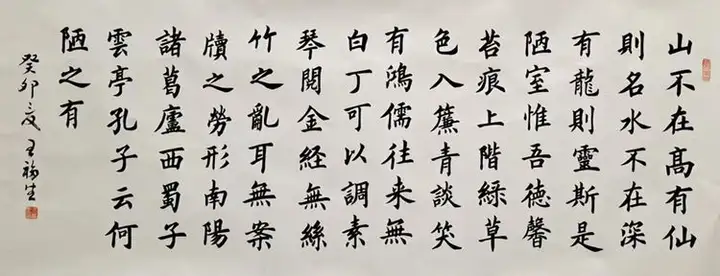 山不在髙有仙
則名水不在深
有龍則靈斯是
陋室惟吾德馨
苔痕上階綠草
色入簾青談笑
有鴻儒往来無
白丁可以調素
琴閱金経無絲
竹之亂耳無案
牘之勞形南陽
諸葛廬西蜀子
雲亭孔子云何
陋之有
癸卯夏王福生